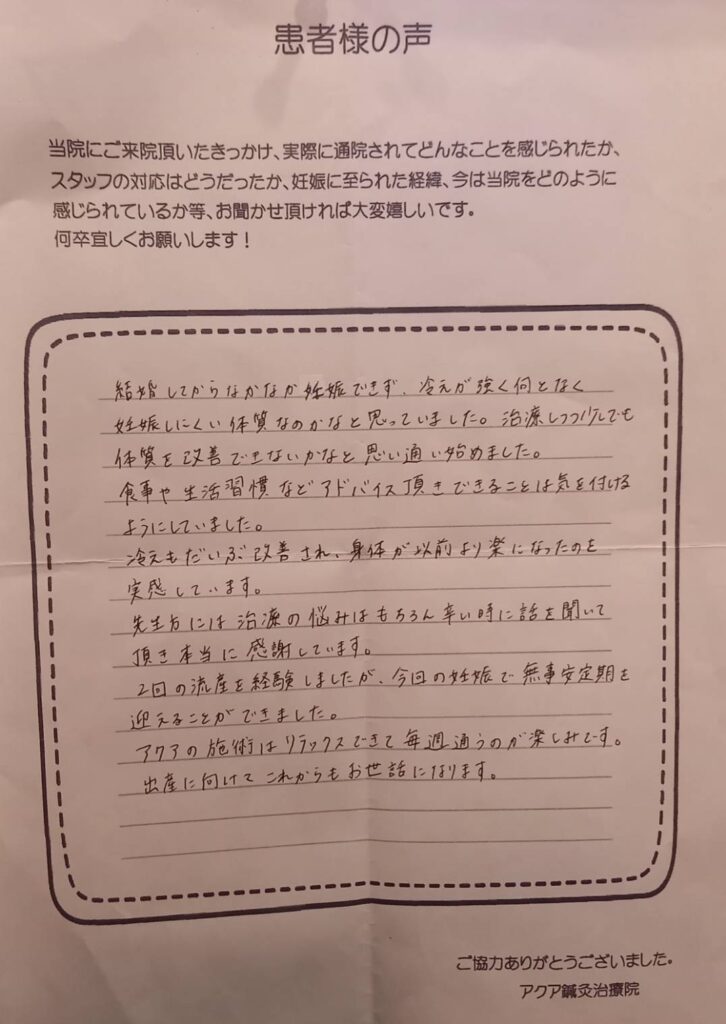 患者様の声
当院にご来院頂いたきっかけ、実際に通院されてどんなことを感じられたか、
スタッフの対応はどうだったか、妊娠に至られた経緯、今は当院をどのように
感じられているか等、お聞かせ頂ければ大変嬉しいです。
何卒宜しくお願いします！
結婚してからなかなか妊娠できず、冷えが強く何となく
妊娠しにくい体質なのかなと思っていました。治療しつつ少しでも
体質を改善できないかなと思い通い始めました。
食事や生活習慣などアドバイス頂きできることは気を付ける
ようにしていました。
冷えもだいぶ改善され、身体が以前より楽になったのを
実感しています。
先生方には治療の悩みはもちろん辛い時に話を聞いて
頂き本当に感謝しています。
2回の流産を経験しましたが、今回の妊娠で無事安定期を
迎えることができました。
アクアの施術はリラックスできて毎週通うのが楽しみです。
出産に向けてこれからもお世話になります。
ご協力ありがとうございました。
アクア鍼灸治療院